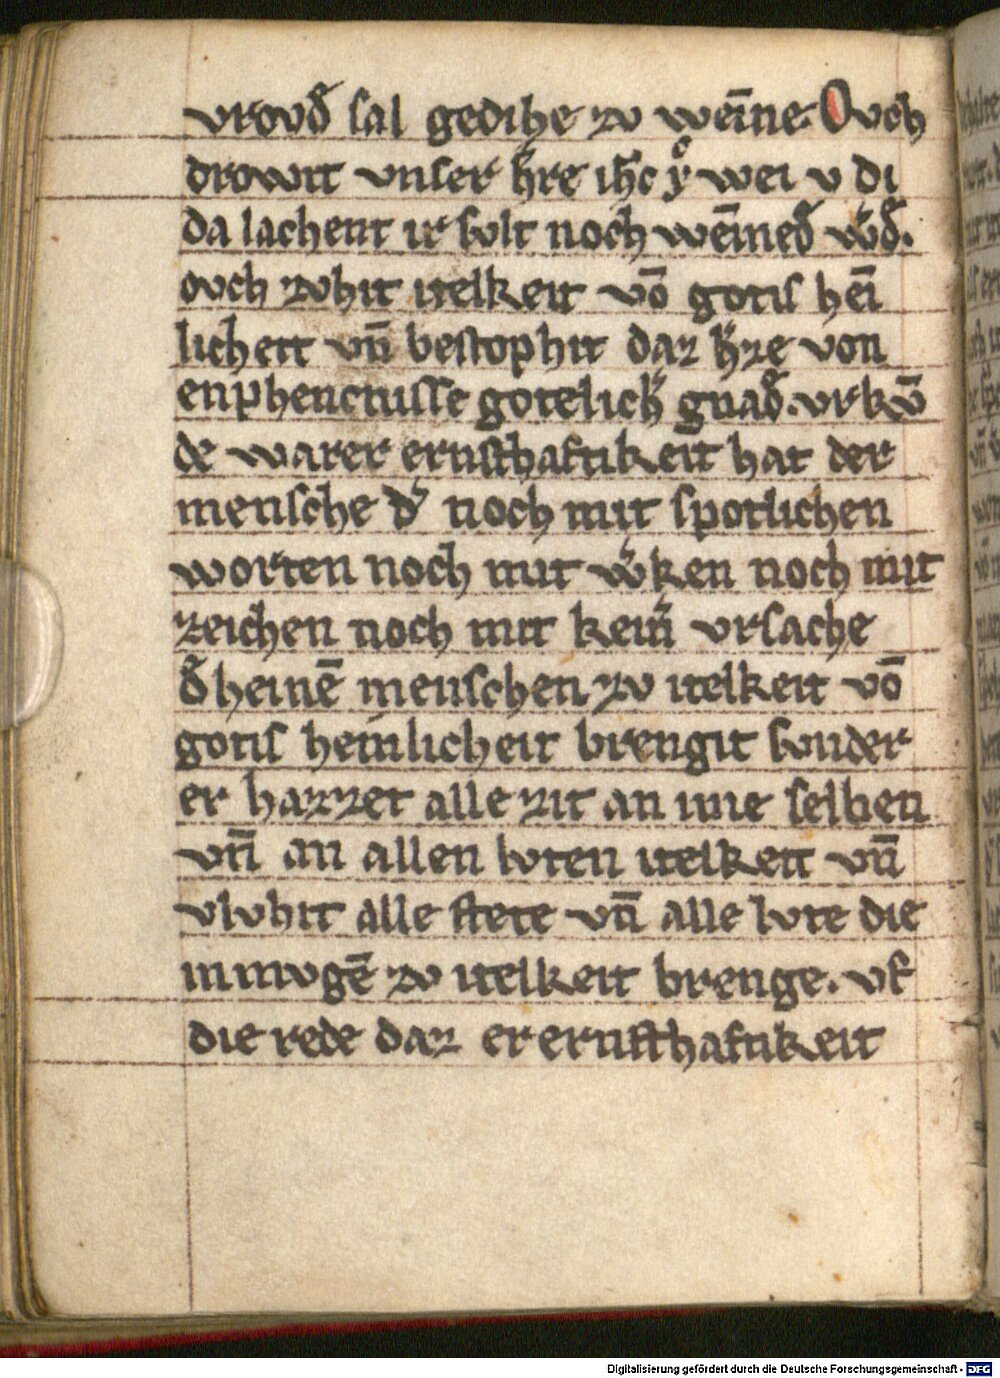 vrovd̄ sal gedihe zv wēıne. Ovch
drowit vnser h̄re ih̄c xͦ wei v di
da lachent ir svlt noch wēıned̄ w̄d̄.
ovch zvhit itelkeit vō gotis hēı
licheit vn̄ bestophit daz h̄ze von
enphencnisse gotelich̄ gnad̄. vrkv̄
de warer ernsthaftikeit hat der
mensche d̄ noch mit spotlichen
worten noch mit w̄ken noch mit
zeichen noch mit kein̄ vrsache
d̄heinē menschen zv itelkeit vō
gotis heinlicheit brengit svnder
er hazzet alle zit an ime selben
vn̄ an allen lvten itelkeit vn̄
vlvhit alle stete vn̄ alle lvte die
in mvgē zv itelkeit brenge. vf
die rede daz er ernsthaftikeit
Digitalisierung gefördert durch die Deutsche Forschungsgemeinschaft - DFG